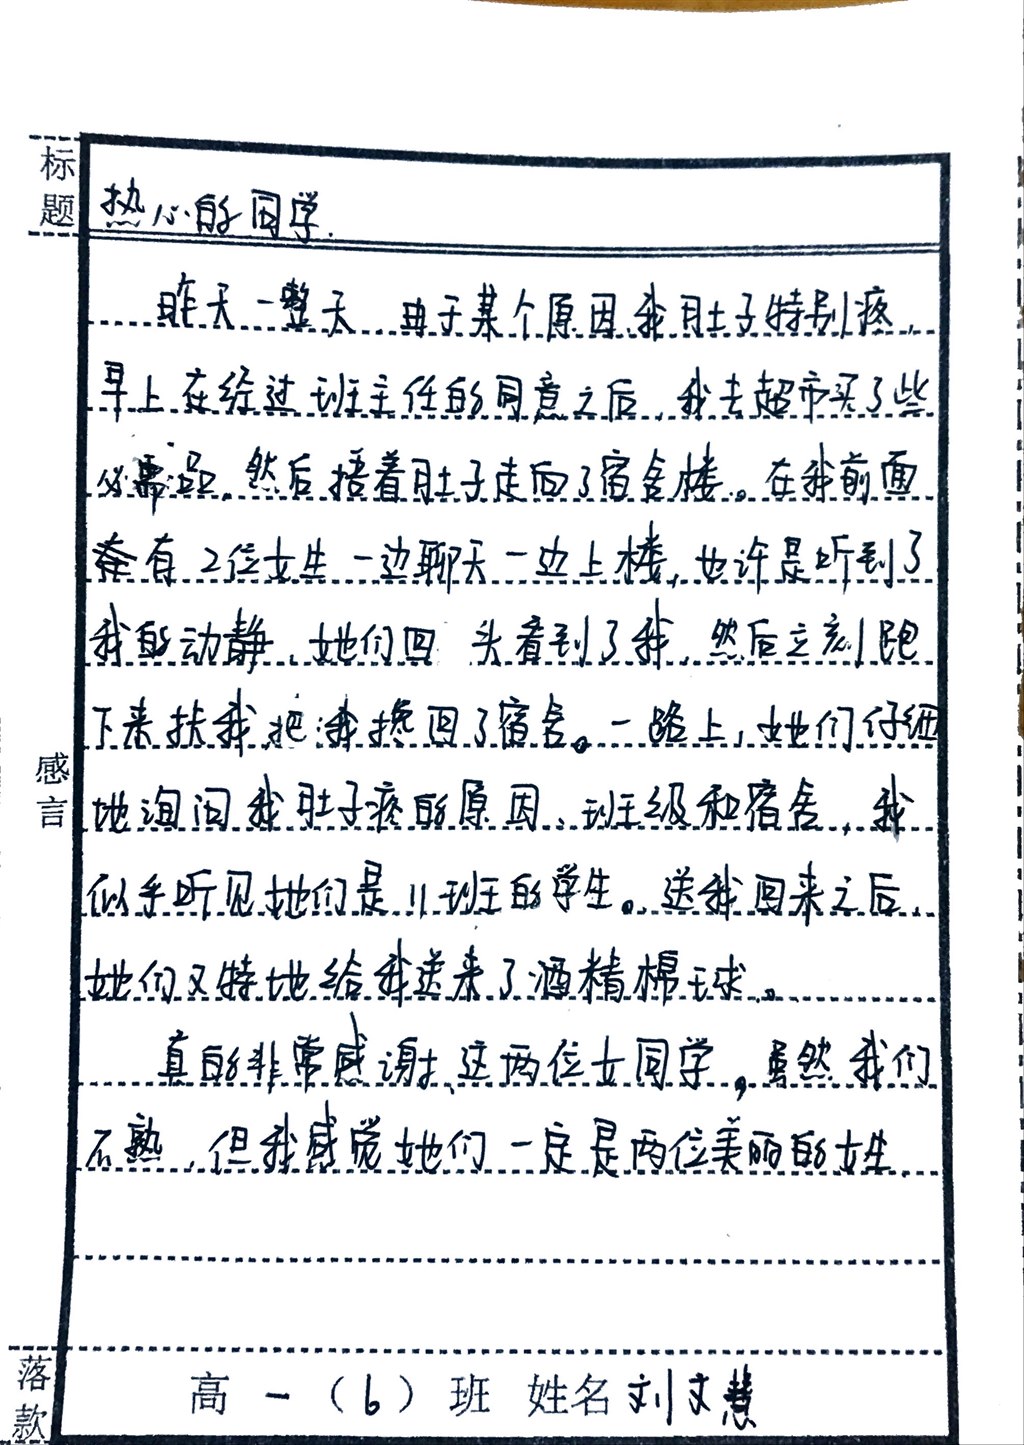 标题
热心的同学.
昨天一整天,由于某个原因,我肚子特别疼,
早上在经过班主任的同意之后,我去超市买了些
必需品,然后捂着肚子走向了宿舍楼。在我前面
有2位女生一边聊天一边上楼,也许是听到了
我的动静,她们回头看到了我,然后立刻跑
下来扶我,把我搀回了宿舍。一路上,她们仔细
地询问我肚子疼的原因、班级和宿舍,我
似乎听见她们是11班的学生。送我回来之后,
她们又特地给我送来了酒精棉球。
真的非常感谢这两位女同学,虽然我们
不熟,但我感觉她们一定是两位美丽的女生.
感言
落款
高一(6)班 姓名刘文慧